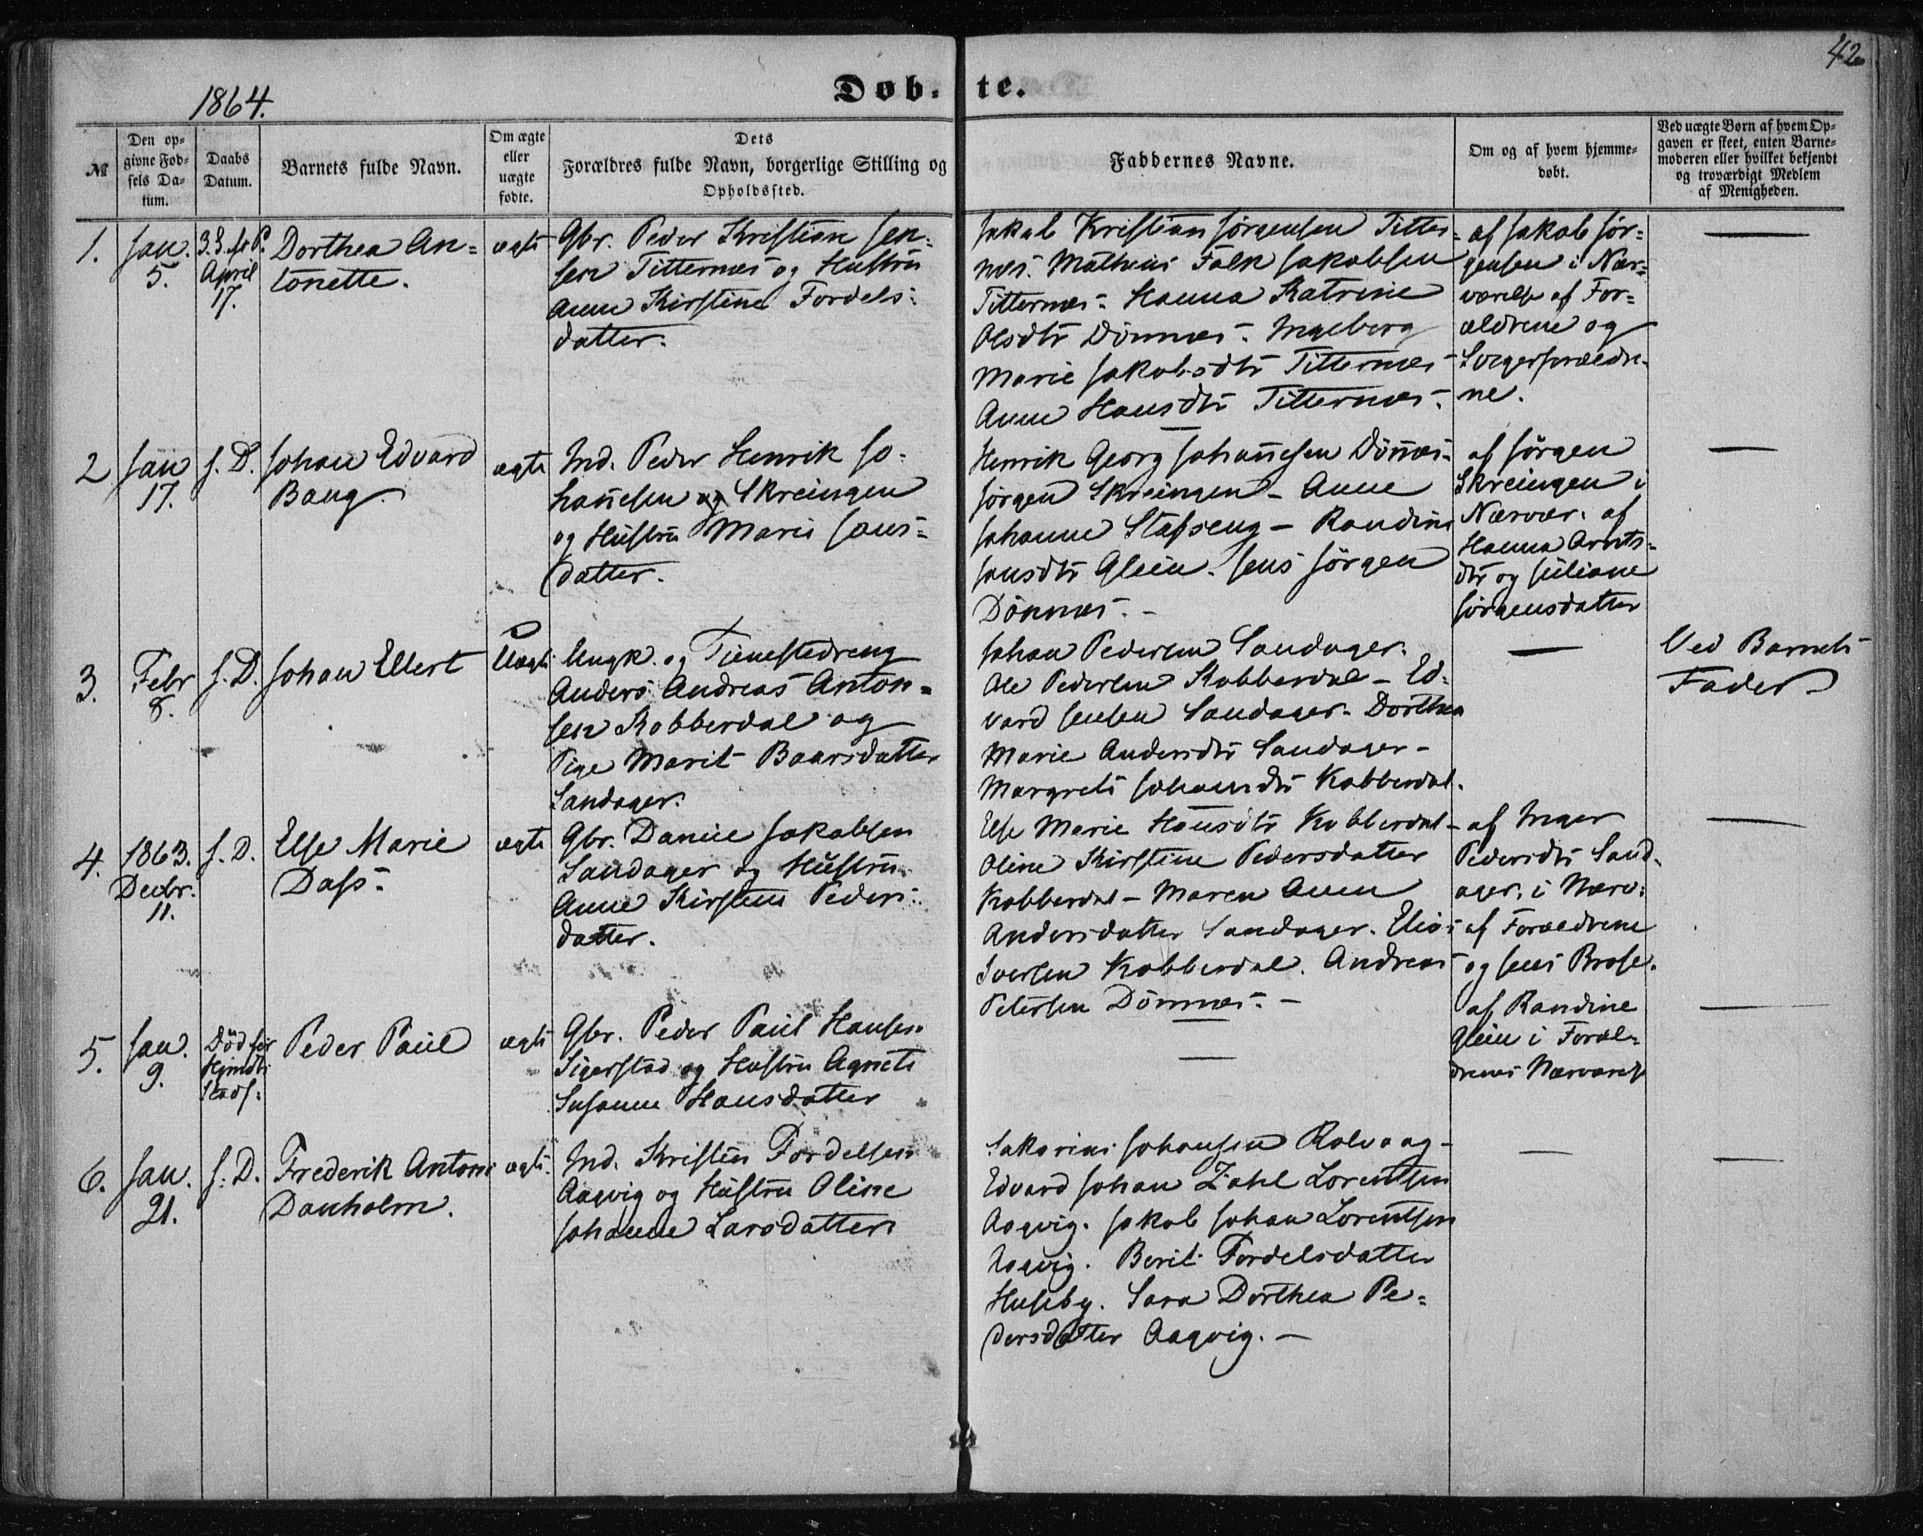 42
1864.
Døb-te.
№
Den op-
givne Fød-
sels Da-
tum.
Daabs
Datum.
Barnets fulde Navn.
Om ægte
eller
uægte
fødte.
Dets
Forældres fulde Navn, borgerlige Stilling og
Opholdssted.
Faddernes Navne.
Om og af hvem hjemme-
døbt.
Ved uægte Børn af hvem Op-
gaven er skeet, enten Barne-
moderen eller hvilket bekjendt
og troværdigt Medlem
af Menigheden.
1.
Jan.
5.
3. S. f. P.
April
17.
Dorthea An-
tonette.
ægte
Gbr. Peder Kristian Jen-
sen Titternes og Hustru
Anne Kirstine Fordels-
datter.
Jakob Kristian Jørgensen Titter-
nes. Matheus Falk Jakobsen
Titternes. Hanna Katrine
Olsdtr Dönnes. Ingeborg
Marie Jakobsdtr Titternes
Anne Hansdtr Titternes.
af Jakob Jör-
gensen i Nær-
værelse af For-
ældrene og
Svigerforældre-
ne.
2
Jan
17.
s. D.
Johan Edvard
Bang
ægte
Ind. Peder Henrik Jo-
hannesen og Skreingen
og Hustru Maria Jans-
datter.
Henrik Georg Johannesen Dönnes-
Jörgen Skreingen - Anne
Johanne Stafseng - Randine
Jansdtr Glein. Jens Jörgen
Dönnes. -
af Jörgen
Skreingen i
Nærvær. af
Hanna Arnts-
dtr og Juliane
Jörgensdatter
3.
Febr
8.
s. D.
Johan Elert
Uægte
Ungk. og Tjenestedreng
Anders Andreas Anton-
sen Kobberdal og
Pige Marit Baarsdatter
Sandager.
Johan Pedersen Sandager.
Ole Pedersen Kobberdal - Ed-
vard Jensen Sandager. Dorthea
Marie Andersdtr Sandager -
Margrete Johansdtr Kobberdal.
Ved Barnets
Fader
4.
1863.
Decbr.
11.
s. D.
Else Marie
Dass.
ægte
Gbr. Daniel Jakobsen
Sandager og Hustru
Anne Kirstine Peders-
datter.
Else Marie Hansdtr Kobberdal-
Oline Kirstine Pedersdatter
Kobberdal - Maren Anna
Andersdatter Sandager. Elias
Iversen Kobberdal. Andreas
Petersen Dönnes. -
af Inger
Pedersdtr Sand-
ager. i Nærv.
af Forældrene
og Jens Brose.
5.
Jan.
9.
Död før
Hjmdb.
Stadf.
Peder Paul
ægte
Gbr. Peder Paul Hansen
Sigerstad og Hustru Agnete
Susanne Hansdatter
af Randine
Glein i Foræl-
drenes Nærværelse
6.
Jan.
21.
s. D.
Frederik Antoni
Danholm.
ægte.
Ind. Kristen Fordelsen
Aagvig og Hustru Oline
Johanne Larsdatter
Sakarias Johansen Rolvaag -
Edvard Johan Zahl Lorentsen
Aagvig. Jakob Johan Lorentsen
Aagvig. Berit Fordelsdatter
Huseby. Sara Dorthea Pe-
dersdatter Aagvig. -